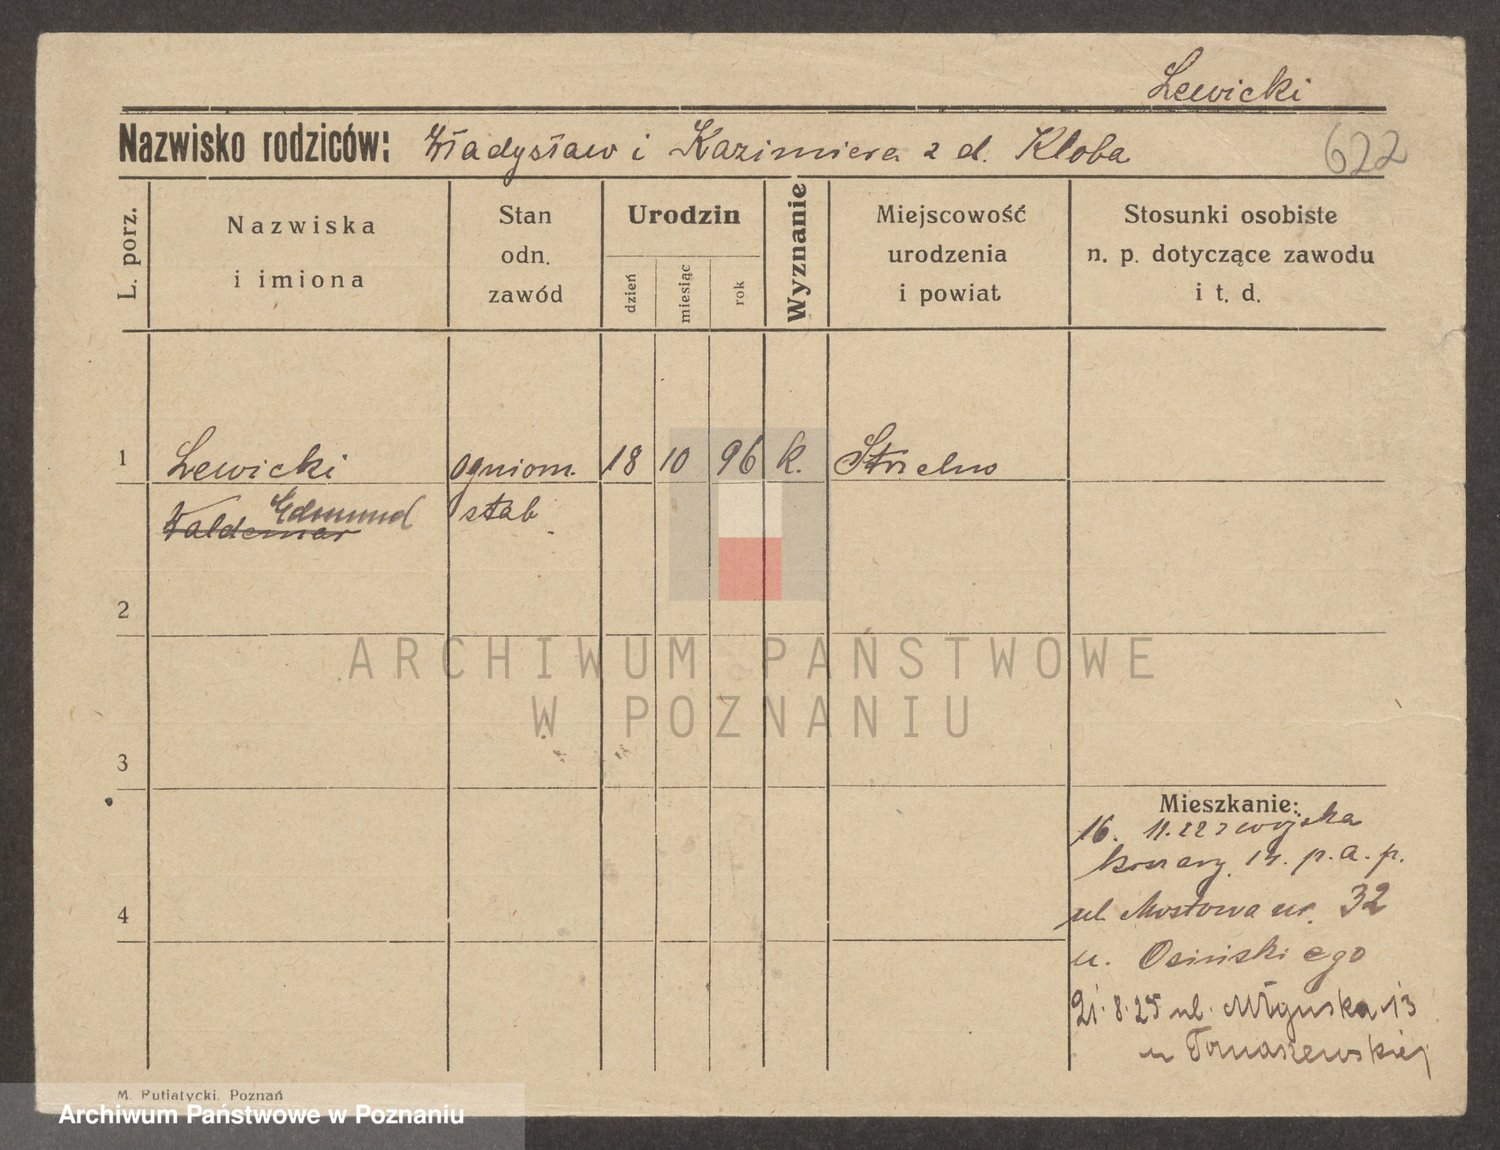 Lewicki
Nazwisko rodziców: Władysław i Kazimiera z d. Kloba
622
L. porz.
Nazwiska
i imiona
Stan
odn.
zawód
Urodzin
dzień
miesiąc
rok
Wyznanie
Miejscowość
urodzenia
i powiat
Stosunki osobiste
n. p. dotyczące zawodu
i t. d.
1 Lewicki ogniom. 18 10 96 k. Strzelno
Edmund
Waldemar stab
2
ARCHIWUM PAŃSTWOWE
W POZNANIU
3
Mieszkanie:
16. 11. 22 z wojska
koszary 14. p. a. p.
4
ul. Mostowa nr. 32
u. Osińskiego
21. 8. 25 ul. 13
u Tomaszewskiej
M. Putiatycki. Poznań
Archiwum Państwowe w Poznaniu